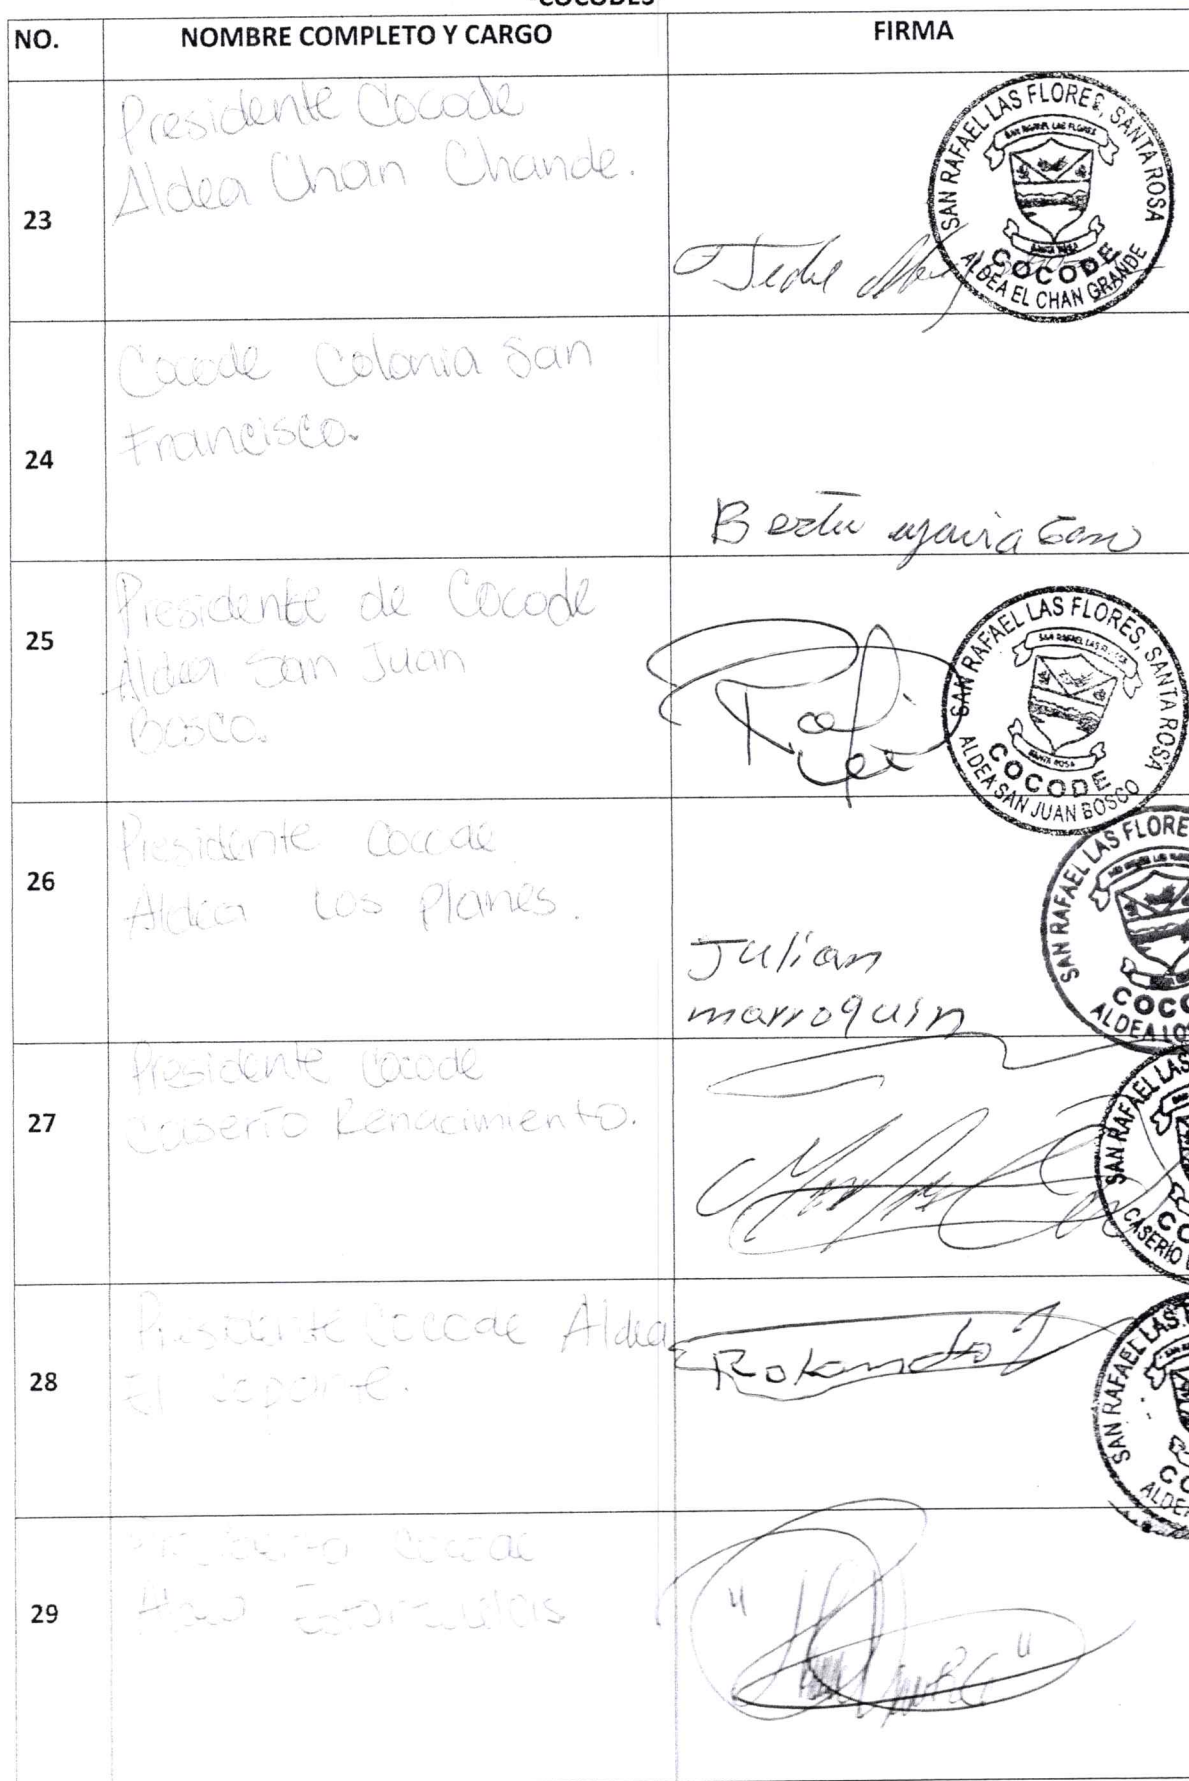 COCODES
NO. NOMBRE COMPLETO Y CARGO FIRMA
23
Presidente Cocode
Aldea Chan Chande.
SAN RAFAEL LAS FLORES, SANTA ROSA
SAN RAFAEL LAS FLORES
SANTA ROSA
COCODE
ALDEA EL CHAN GRANDE
24
Cocode Colonia San
Francisco.
25
Presidente de Cocode
Aldea San Juan
Bosco.
SAN RAFAEL LAS FLORES, SANTA ROSA
SANTA ROSA
COCODE
ALDEA SAN JUAN BOSCO
26
Presidente Cocode
Aldea Los planes.
Julian
marroquin
SAN RAFAEL LAS FLORE
COCO
ALDEA LOS
27
Presidente Cocode
Caserío Renacimiento.
SAN RAFAEL LAS
CO
CASERIO
28
Presidente Cocode Aldea
El copante.
Rolando
SAN RAFAEL LAS
CO
ALDEA
29
Cocode